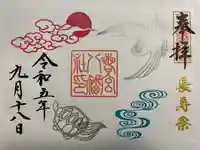 奉拝
長寿祭
令和五年
九月十八日